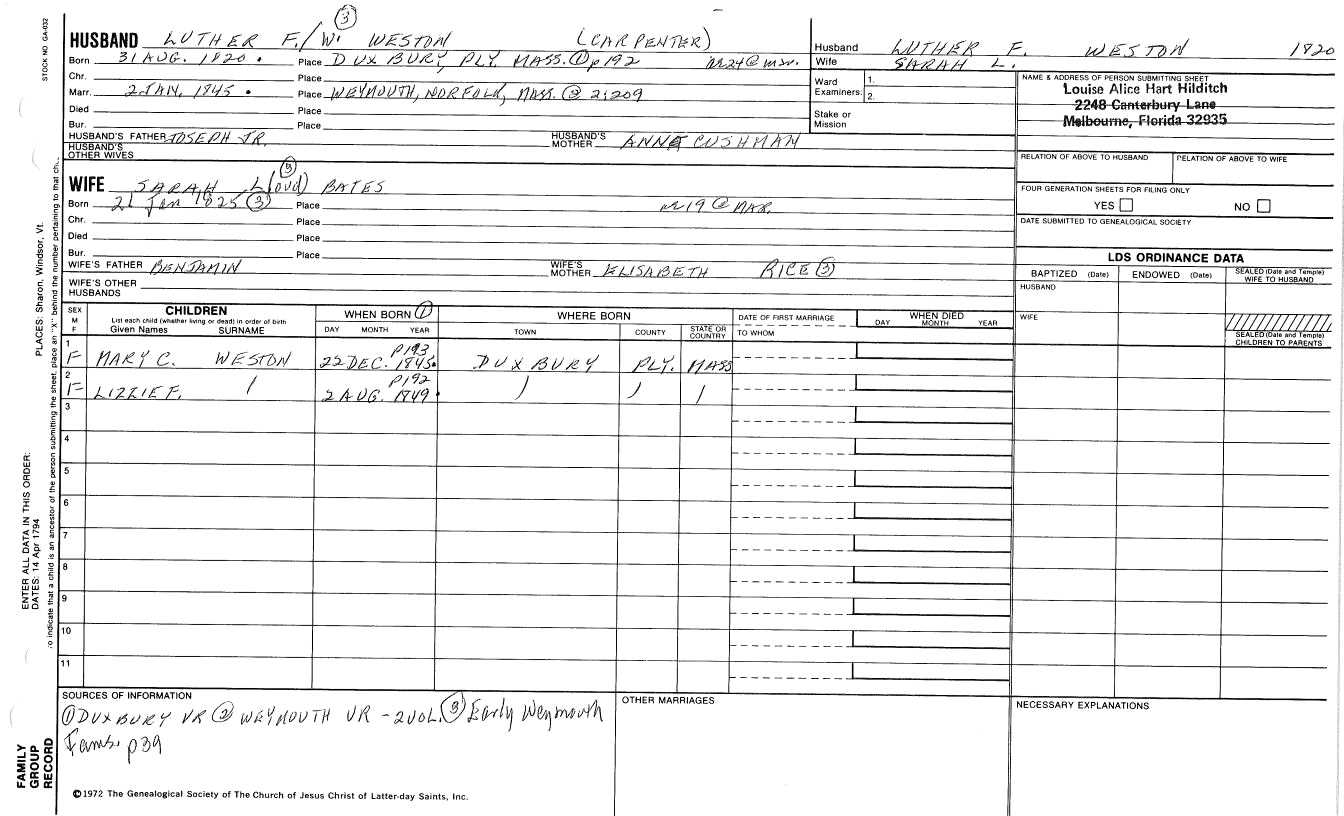 STOCK NO. GA-032
③
HUSBAND LUTHER F./W. WESTON (CARPENTER)
Born 31 AUG. 1820. Place DUXBURY, PLY. MASS. ① p192 M24@mar.
Chr. Place
Marr. 2 JAN. 1845. Place WEYMOUTH, NORFOLK, MASS. ② 2:209
Died Place
Bur. Place
HUSBAND'S FATHER JOSEPH JR. HUSBAND'S MOTHER ANNE CUSHMAN
HUSBAND'S OTHER WIVES
③
WIFE SARAH L(oud) BATES
Born 21 Jan 1825 ③ Place M19@MAR.
Chr. Place
Died Place
Bur. Place
WIFE'S FATHER BENJAMIN WIFE'S MOTHER ELISABETH RICE ③
WIFE'S OTHER HUSBANDS
Husband LUTHER F. WESTON 1820
Wife SARAH L.
Ward Examiners: 1. 2.
Stake or Mission
NAME & ADDRESS OF PERSON SUBMITTING SHEET
Louise Alice Hart Hilditch
2248 Canterbury Lane
Melbourne, Florida 32935
RELATION OF ABOVE TO HUSBAND RELATION OF ABOVE TO WIFE
FOUR GENERATION SHEETS FOR FILING ONLY
YES NO
DATE SUBMITTED TO GENEALOGICAL SOCIETY
LDS ORDINANCE DATA
BAPTIZED (Date) ENDOWED (Date) SEALED (Date and Temple) WIFE TO HUSBAND
HUSBAND
WIFE
SEALED (Date and Temple) CHILDREN TO PARENTS
SEX M F CHILDREN WHEN BORN ① WHERE BORN DATE OF FIRST MARRIAGE WHEN DIED
List each child (whether living or dead) in order of birth
Given Names SURNAME DAY MONTH YEAR TOWN COUNTY STATE OR COUNTRY TO WHOM DAY MONTH YEAR
p193
1 F MARY C. WESTON 22 DEC. 1845. DUXBURY PLY. MASS
p192
2 F LIZZIE F. 2 AUG. 1849.
3
4
5
6
7
8
9
10
11
SOURCES OF INFORMATION
① DUXBURY VR ② WEYMOUTH VR - 2 VOL. ③ Early Weymouth
Fams. p39
OTHER MARRIAGES
NECESSARY EXPLANATIONS
©1972 The Genealogical Society of The Church of Jesus Christ of Latter-day Saints, Inc.
FAMILY GROUP RECORD
ENTER ALL DATA IN THIS ORDER:
DATES: 14 Apr 1794
PLACES: Sharon, Windsor, Vt.
To indicate that a child is an ancestor of the person submitting the sheet, place an "X" behind the number pertaining to that